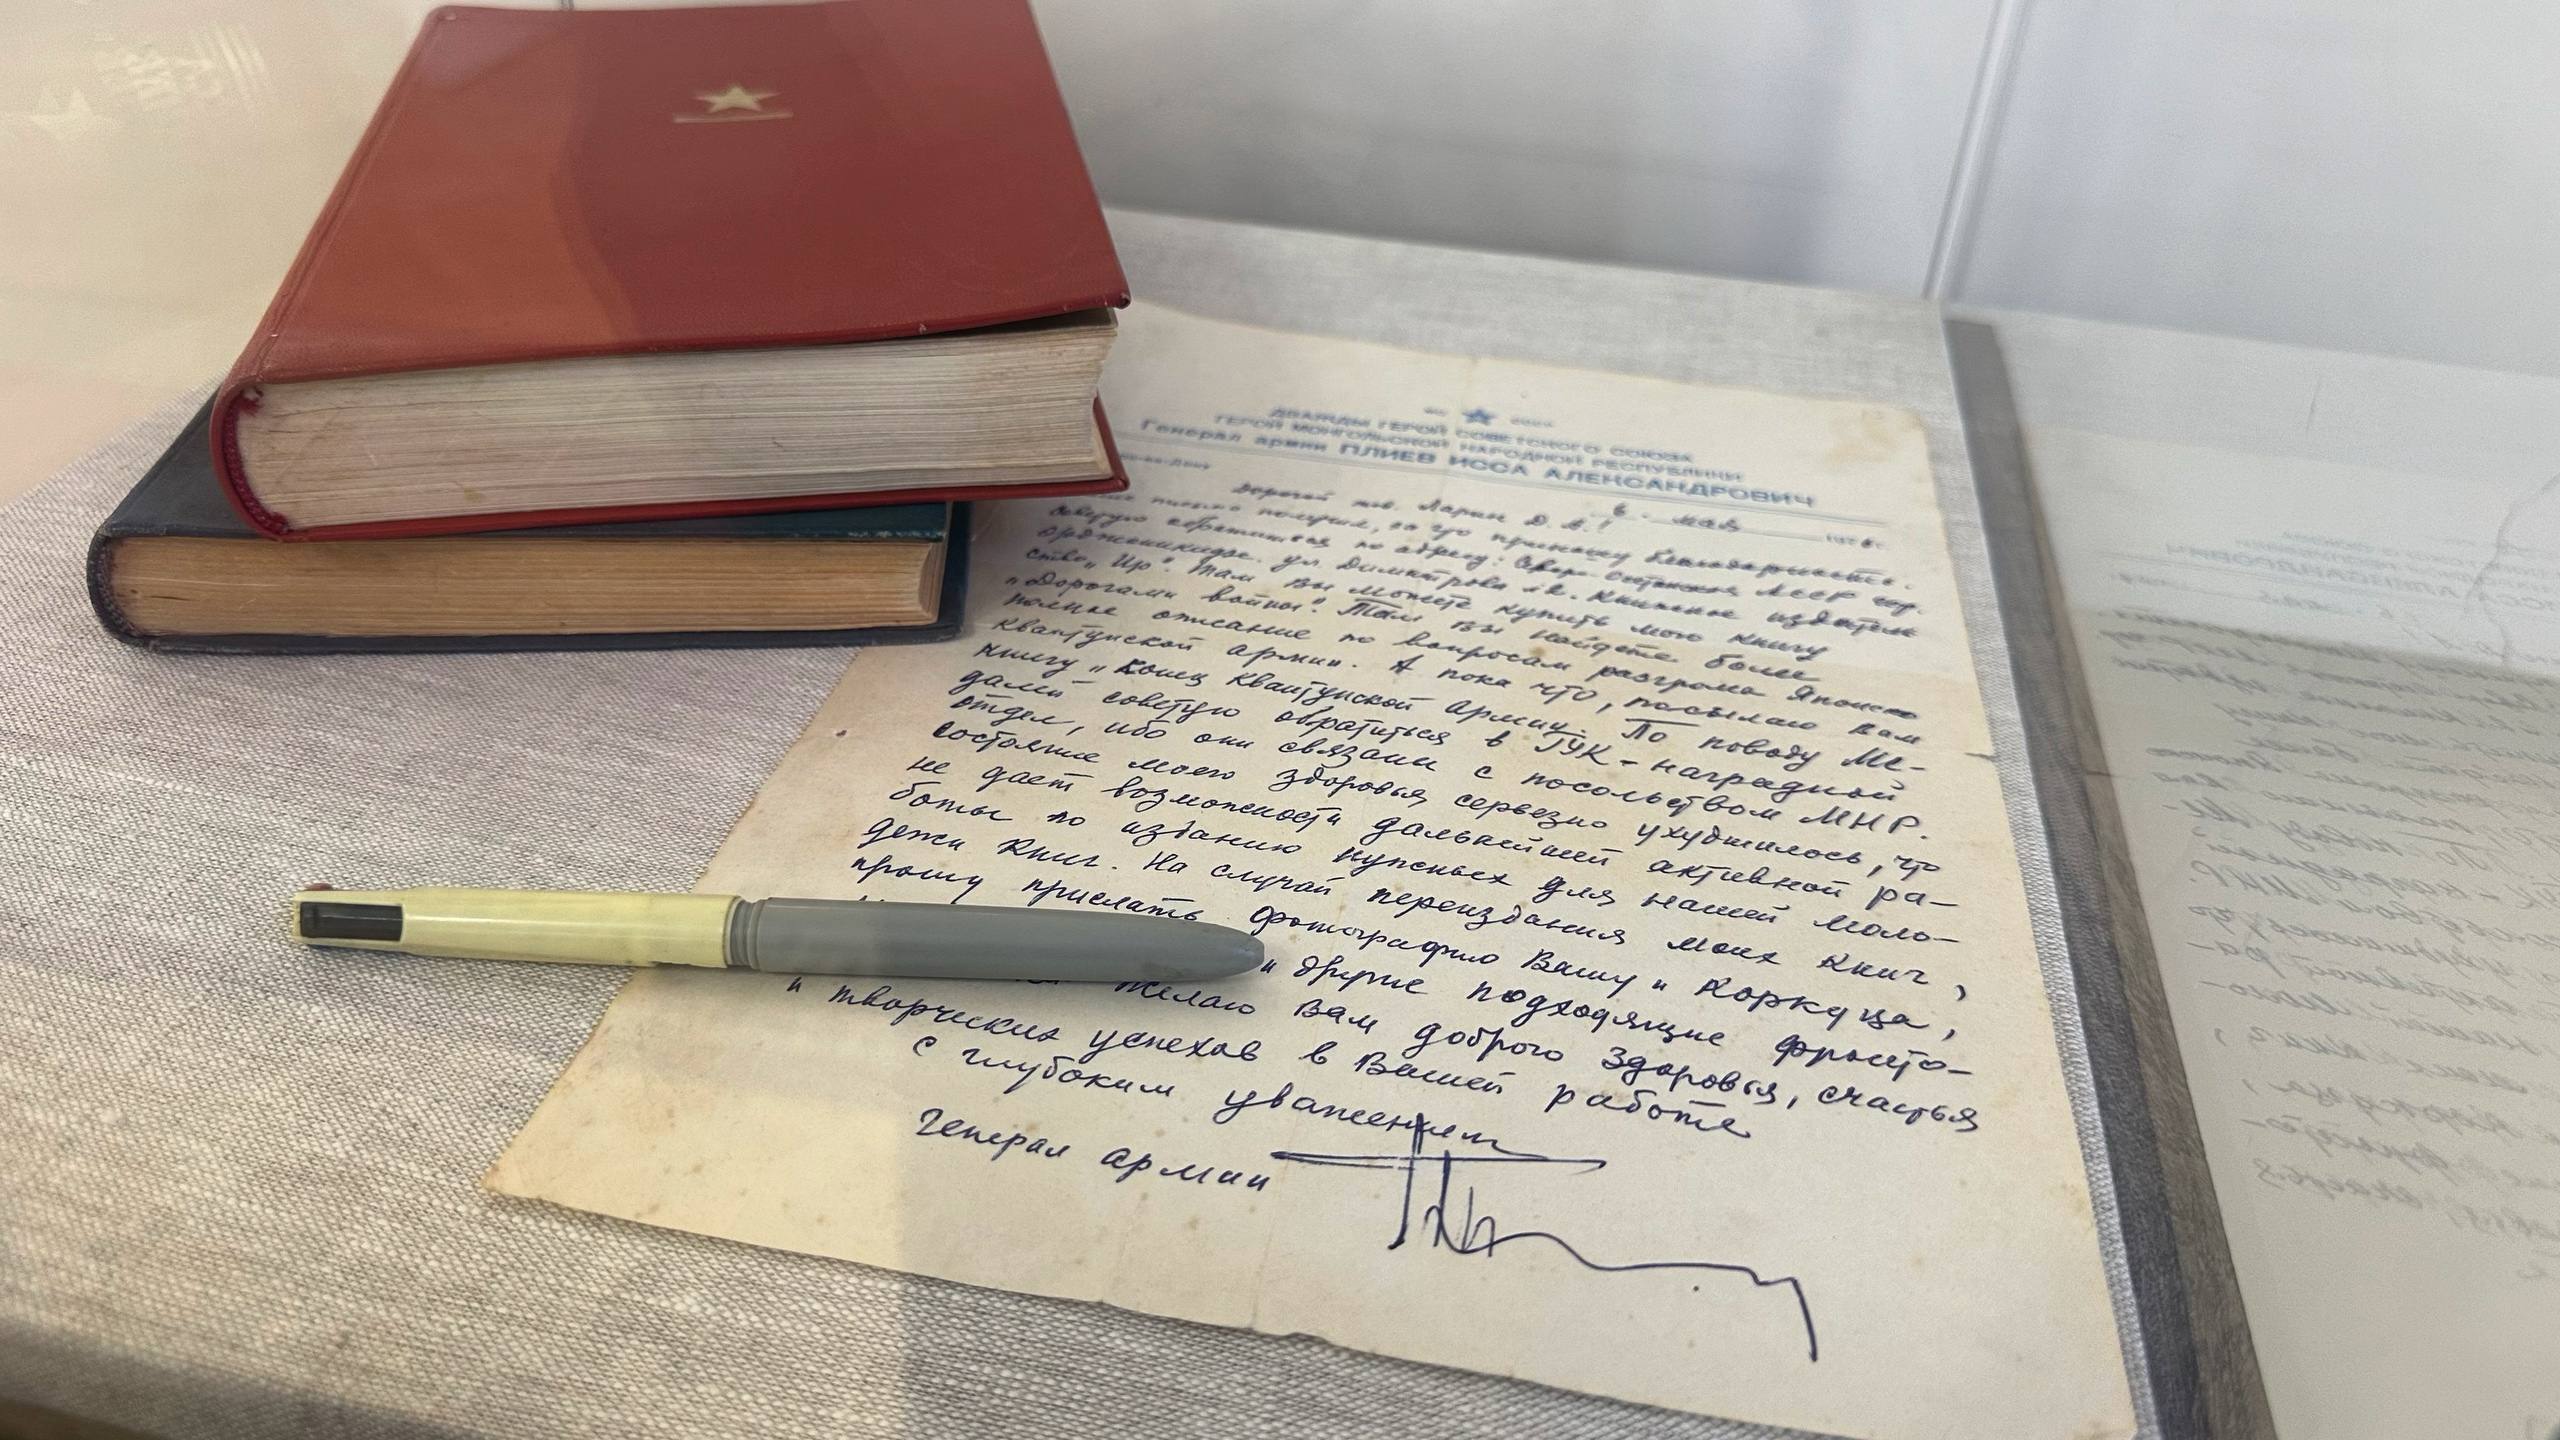 ДВАЖДЫ ГЕРОЙ СОВЕТСКОГО СОЮЗА
ГЕРОЙ МОНГОЛЬСКОЙ НАРОДНОЙ РЕСПУБЛИКИ
Генерал армии ПЛИЕВ ИССА АЛЕКСАНДРОВИЧ
6 мая
Дорогой тов. Ларин Д. А.!
письмо получил, за что приношу благодарность.
Советую обратиться по адресу: Северо-Осетинская АССР гор.
Орджоникидзе. ул Димитрова Книжное издатель
ство "Ир". Там Вы можете купить мою книгу
"Дорогами войны". Там Вы найдете более
полное описание по вопросам разгрома Японско
Квантунской армии. А пока что, посылаю Вам
книгу "Конец Квантунской Армии. По поводу Ме-
далей советую обратиться в ГУК - наградной
отдел, ибо они связаны с посольством МНР.
Состояние моего здоровья серьезно ухудшилось, что
не дает возможности дальнейшей активной ра-
боты по изданию нужных для нашей моло-
дежи книг. На случай переиздания моих книг,
прошу прислать фотографию Вашу и Коркуца,
и другие подходящие фронто-
Желаю Вам доброго здоровья, счастья
и творческих успехов в Вашей работе
с глубоким уважением
Генерал армии